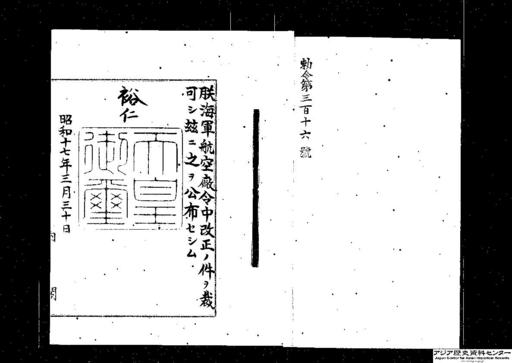 勅令第三百十六號
朕海軍航空廠令中改正ノ件ヲ裁
可シ玆ニ之ヲ公布セシム
裕仁
天皇御璽
昭和十七年三月三十日
内閣
アジア歴史資料センター
Japan Center for Asian Historical Records